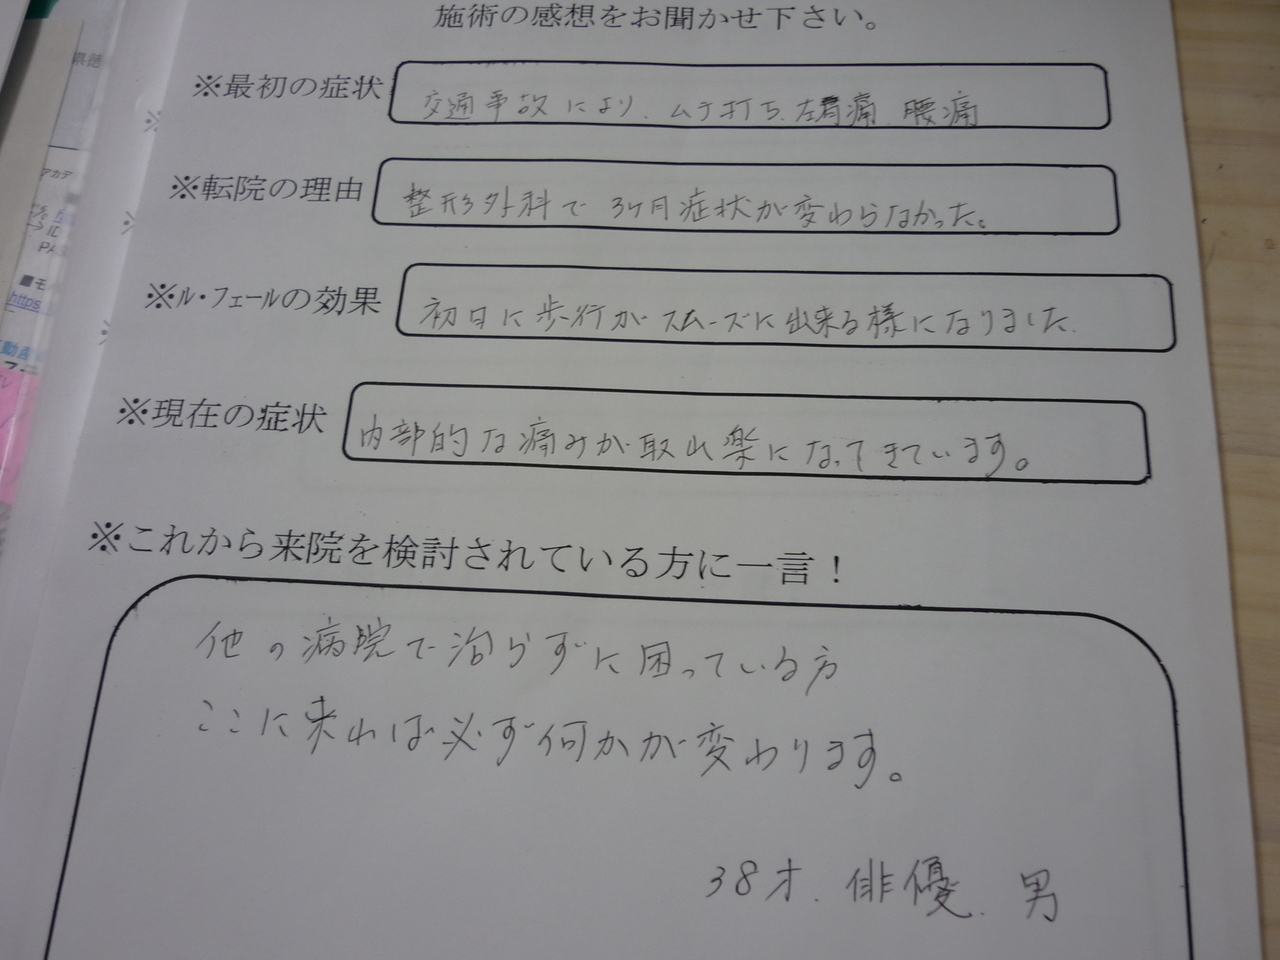 施術の感想をお聞かせ下さい。
※最初の症状
交通事故により、ムチ打ち、左肩痛、腰痛
※転院の理由
整形外科で3ヶ月症状が変わらなかった。
※ル・フェールの効果
初日に歩行がスムーズに出来る様になりました.
※現在の症状
内部的な痛みが取れ楽になってきています。
※これから来院を検討されている方に一言！
他の病院で治らずに困っている方
ここに来れば必ず何かが変わります。
38才. 俳優. 男
県徳
アカデ
ID
PAS
■モ
https
動産